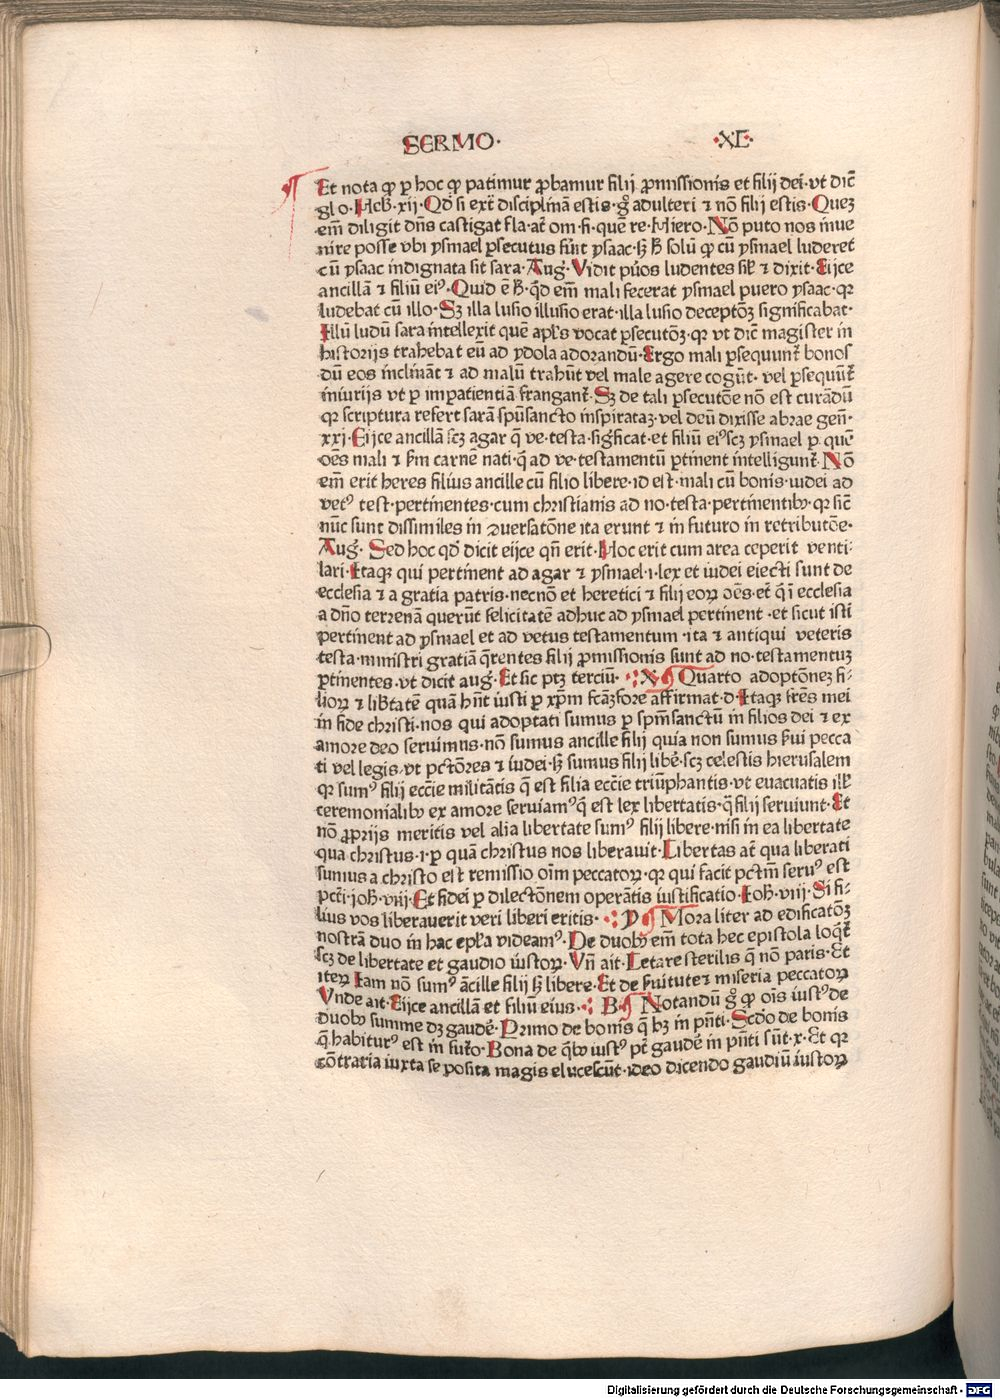 SERMO· ·XL·
Et nota ꝙ ꝑ hoc ꝙ patimur ꝓbamur filij ꝓmissionis et filij dei· vt dic̄
glo· Heb̄· xij· Qd̄ si ext̄ disciplinā estis· gͦ adulteri ⁊ nō filij estis· Queꝫ
em̄ diligit dn̄s castigat fla· at̄ om· fi· quē re· Hiero· Nō puto nos inue
nire posse vbi ysmael ꝑsecutus fūit ysaac· sꝫ h̄ solū ꝙ cū ysmael luderet
cū ysaac indignata sit sara· Aug̉· Vidit pūos ludentes sil̄ ⁊ dixit· Eijce
ancillā ⁊ filiū eiꝰ· Quid ē h̄· qd̄ em̄ mali fecerat ysmael puero ysaac· qꝛ
ludebat cū illo· Sꝫ illa lusio illusio erat· illa lusio deceptōꝫ significabat·
Illū ludū sara intellexit quē apl̄s vocat ꝑsecutōꝫ· qꝛ vt dic̄ magister in
historijs trahebat eū ad ydola adorandū· Ergo mali ꝑsequunt̄ bonos
dū eos inclināt ⁊ ad malū trahūt vel male agere cogūt· vel ꝑsequūt̄
iniurijs vt ꝑ impatientiā frangant̄· Sꝫ de tali ꝑsecutōe nō est curādū
qꝛ scriptura refert sarā spūsancto inspirataꝫ· vel deū dixisse abrae gen̄·
xxj· Eijce ancillā scꝫ agar q̄ ve· testa· sig̉ficat· et filiū eiꝰ scꝫ ysmael ꝑ quē
oēs mali ⁊ ẜm carnē nati· q̄ ad ve· testamentū ꝑtinent intelligunt̄· Nō
em̄ erit heres filius ancille cū filio libere· id est· mali cū bonis· iudei ad
vetꝰ test· pertinentes· cum christianis ad no· testa· pertinentibꝫ· qꝛ sic̄
nūc sunt dissimiles in ꝯuersatōne ita erunt ⁊ in futuro in retributōe·
Aug̉· Sed hoc qd̄ dicit eijce qn̄ erit· Hoc erit cum area ceperit venti-
lari· Itaqꝫ qui pertinent ad agar ⁊ ysmael· i· lex et iudei eiecti sunt de
ecclesia ⁊ a gratia patris· necnō et heretici ⁊ filij eoꝝ oēs· et q̄ ī ecclesia
a dn̄o terrenā querūt felicitatē adhuc ad ysmael pertinent· et sicut isti
pertinent ad ysmael et ad vetus testamentum· ita ⁊ antiqui veteris
testa· ministri gratiā q̄rentes filij ꝓmissionis sunt ad no· testamentuꝫ
ꝑtinentes· vt dicit aug̉· Et sic ptꝫ terciū· X ¶ Quarto adoptōneꝫ fi-
lioꝝ ⁊ lib̄tatē quā hn̄t iusti ꝑ xp̄m fcāꝫ fore affirmat· d· Itaqꝫ fr̄es mei
in fide christi· nos qui adoptati sumus ꝑ spm̄sanctū in filios dei ⁊ ex
amore deo seruimus· nō sumus ancille filij quia non sumus ẜui pecca
ti vel legis· vt pctōres ⁊ iudei· sꝫ sumus filij lib̄e· scꝫ celestis hierusalem
qꝛ sumꝰ filij eccl̄ie militātis q̄ est filia eccl̄ie triūphantis· vt euacuatis ill̄
ceremonialibꝫ ex amore seruiamꝰ q̄ est lex libertatis· q̄ filij seruiunt· Et
nō ꝓprijs meritis vel alia libertate sumꝰ filij libere· nisi in ea libertate
qua christus· i· ꝑ quā christus nos liberauit· Libertas at̄ qua liberati
sumus a christo est remissio oīm peccatoꝝ· qꝛ qui facit pctm̄ seruꝰ est
pctī· joh̄· viij· Et fidei ꝑ dilectōnem operātis iustificatio· Ioh̄· viij· Si fi-
lius vos liberauerit veri liberi eritis· Y ¶ Moraliter ad edificatōꝫ
nostrā duo in hac epl̄a videamꝰ· De duobꝫ em̄ tota hec epistola loqt̄
scꝫ de libertate et gaudio iustoꝝ· Vn̄ ait· Letare sterilis q̄ nō paris· Et
iteꝝ Iam nō sumꝰ ācille filij sꝫ libere· Et de ẜuitute ⁊ miseria peccatoꝝ
Vnde ait· Eijce ancillā et filiū eius· B ¶ Notandū gͦ ꝙ oīs iustꝰ de
duobꝫ summe dꝫ gaudē· Primo de bonis q̄ hꝫ in pn̄ti· Scd̄o de bonis
q̄ habiturꝰ est in fut̄o· Bona de qbꝫ iustꝰ pt̄ gaudē in pn̄ti sūt· x· Et qꝛ
cōtraria iuxta se posita magis elucescūt· ideo dicendo gaudiū iustoꝝ
Digitalisierung gefördert durch die Deutsche Forschungsgemeinschaft - DFG